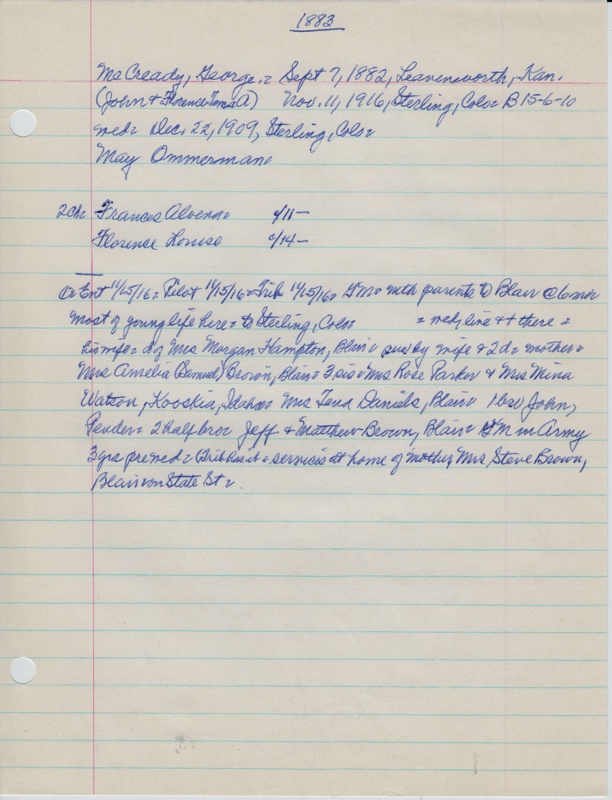 1883
McCready, George = Sept 7, 1882, Leavenworth, Kan.
(John & Florence A) Nov. 11, 1916, Sterling, Colo = B15-6-10
med = Dec. 22, 1909, Sterling, Colo =
May Ommerman =
2 ch = Frances = c/11 —
Florence Louise c/14 —
Ent 11/15/16 = Pilot 11/15/16 = Trib 11/15/16 = GM = with parents to Blair @ 6 mos
most of young life here = to Sterling, Colo = = med, live & + there =
his wife = d of Mrs Morgan Hampton, Blair = sur by wife & 2 d = mother =
Mrs Amelia (Samuel) Brown, Blair = 3 sis = Mrs Rose Parker & Mrs Mina
Watson, Kooskia, Idaho = Mrs Daniels, Blair = 1 bro John,
Pender = 2 half bro = Jeff & Matthew Brown, Blair = GM in Army
3 yrs pre med = = services at home of mother, Mrs Steve Brown,
Blair on State St =